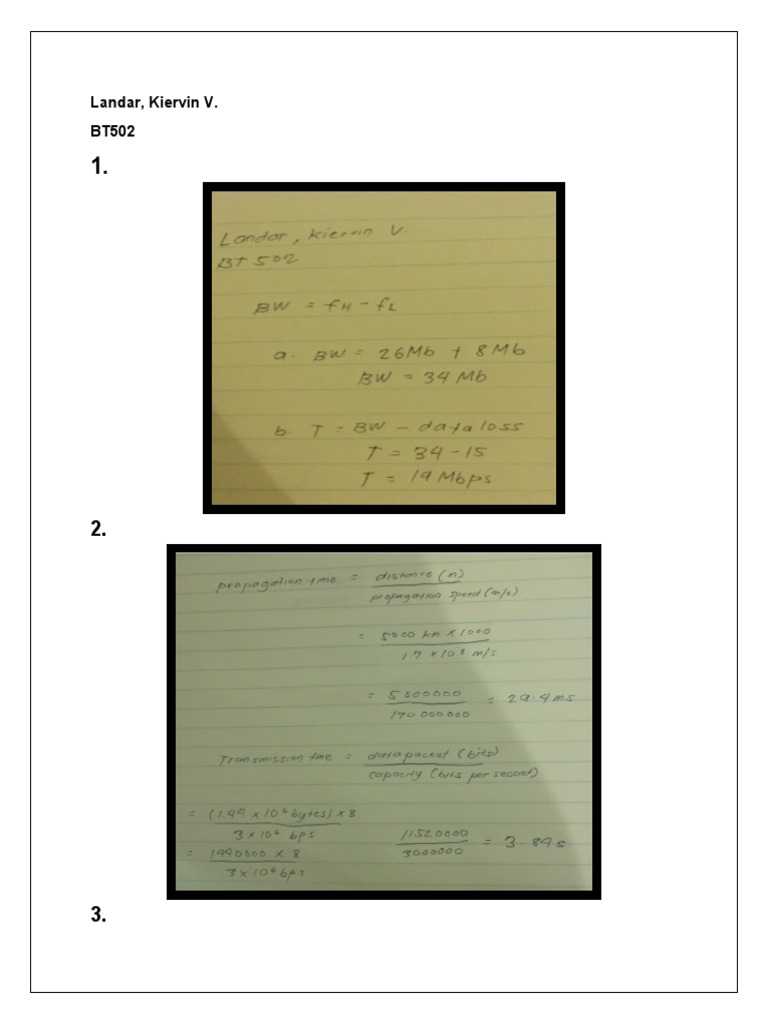 Landar, Kiervin V.
BT502
1.
Landar, Kiervin V.
BT 502
BW = fH - fL
a. BW = 26Mb + 8Mb
BW = 34 Mb
b. T = BW - data loss
T = 34 - 15
T = 19 Mbps
2.
propagation time = distance (m)
propagation speed (m/s)
= 5000 km x 1000
1.7 x 10⁸ m/s
= 5000000 = 29.4 ms
170 000 000
Transmission tme = data packet (bits)
capacity (bits per second)
= (1.44 x 10⁶ bytes) x 8
3 x 10⁶ bps
11520000 = 3.84 s
3000000
= 1440000 x 8
3 x 10⁶ bps
3.